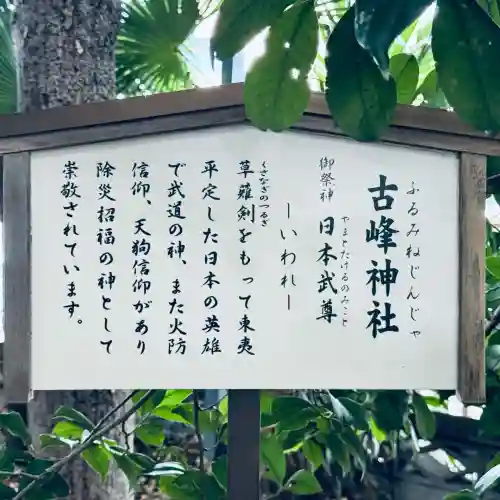 ふるみねじんじゃ
古峰神社
やまとたけるのみこと
御祭神 日本武尊
―いわれ―
くさなぎのつるぎ
草薙剣をもって東夷
平定した日本の英雄
で武道の神、また火防
信仰、天狗信仰があり
除災招福の神として
崇敬されています。